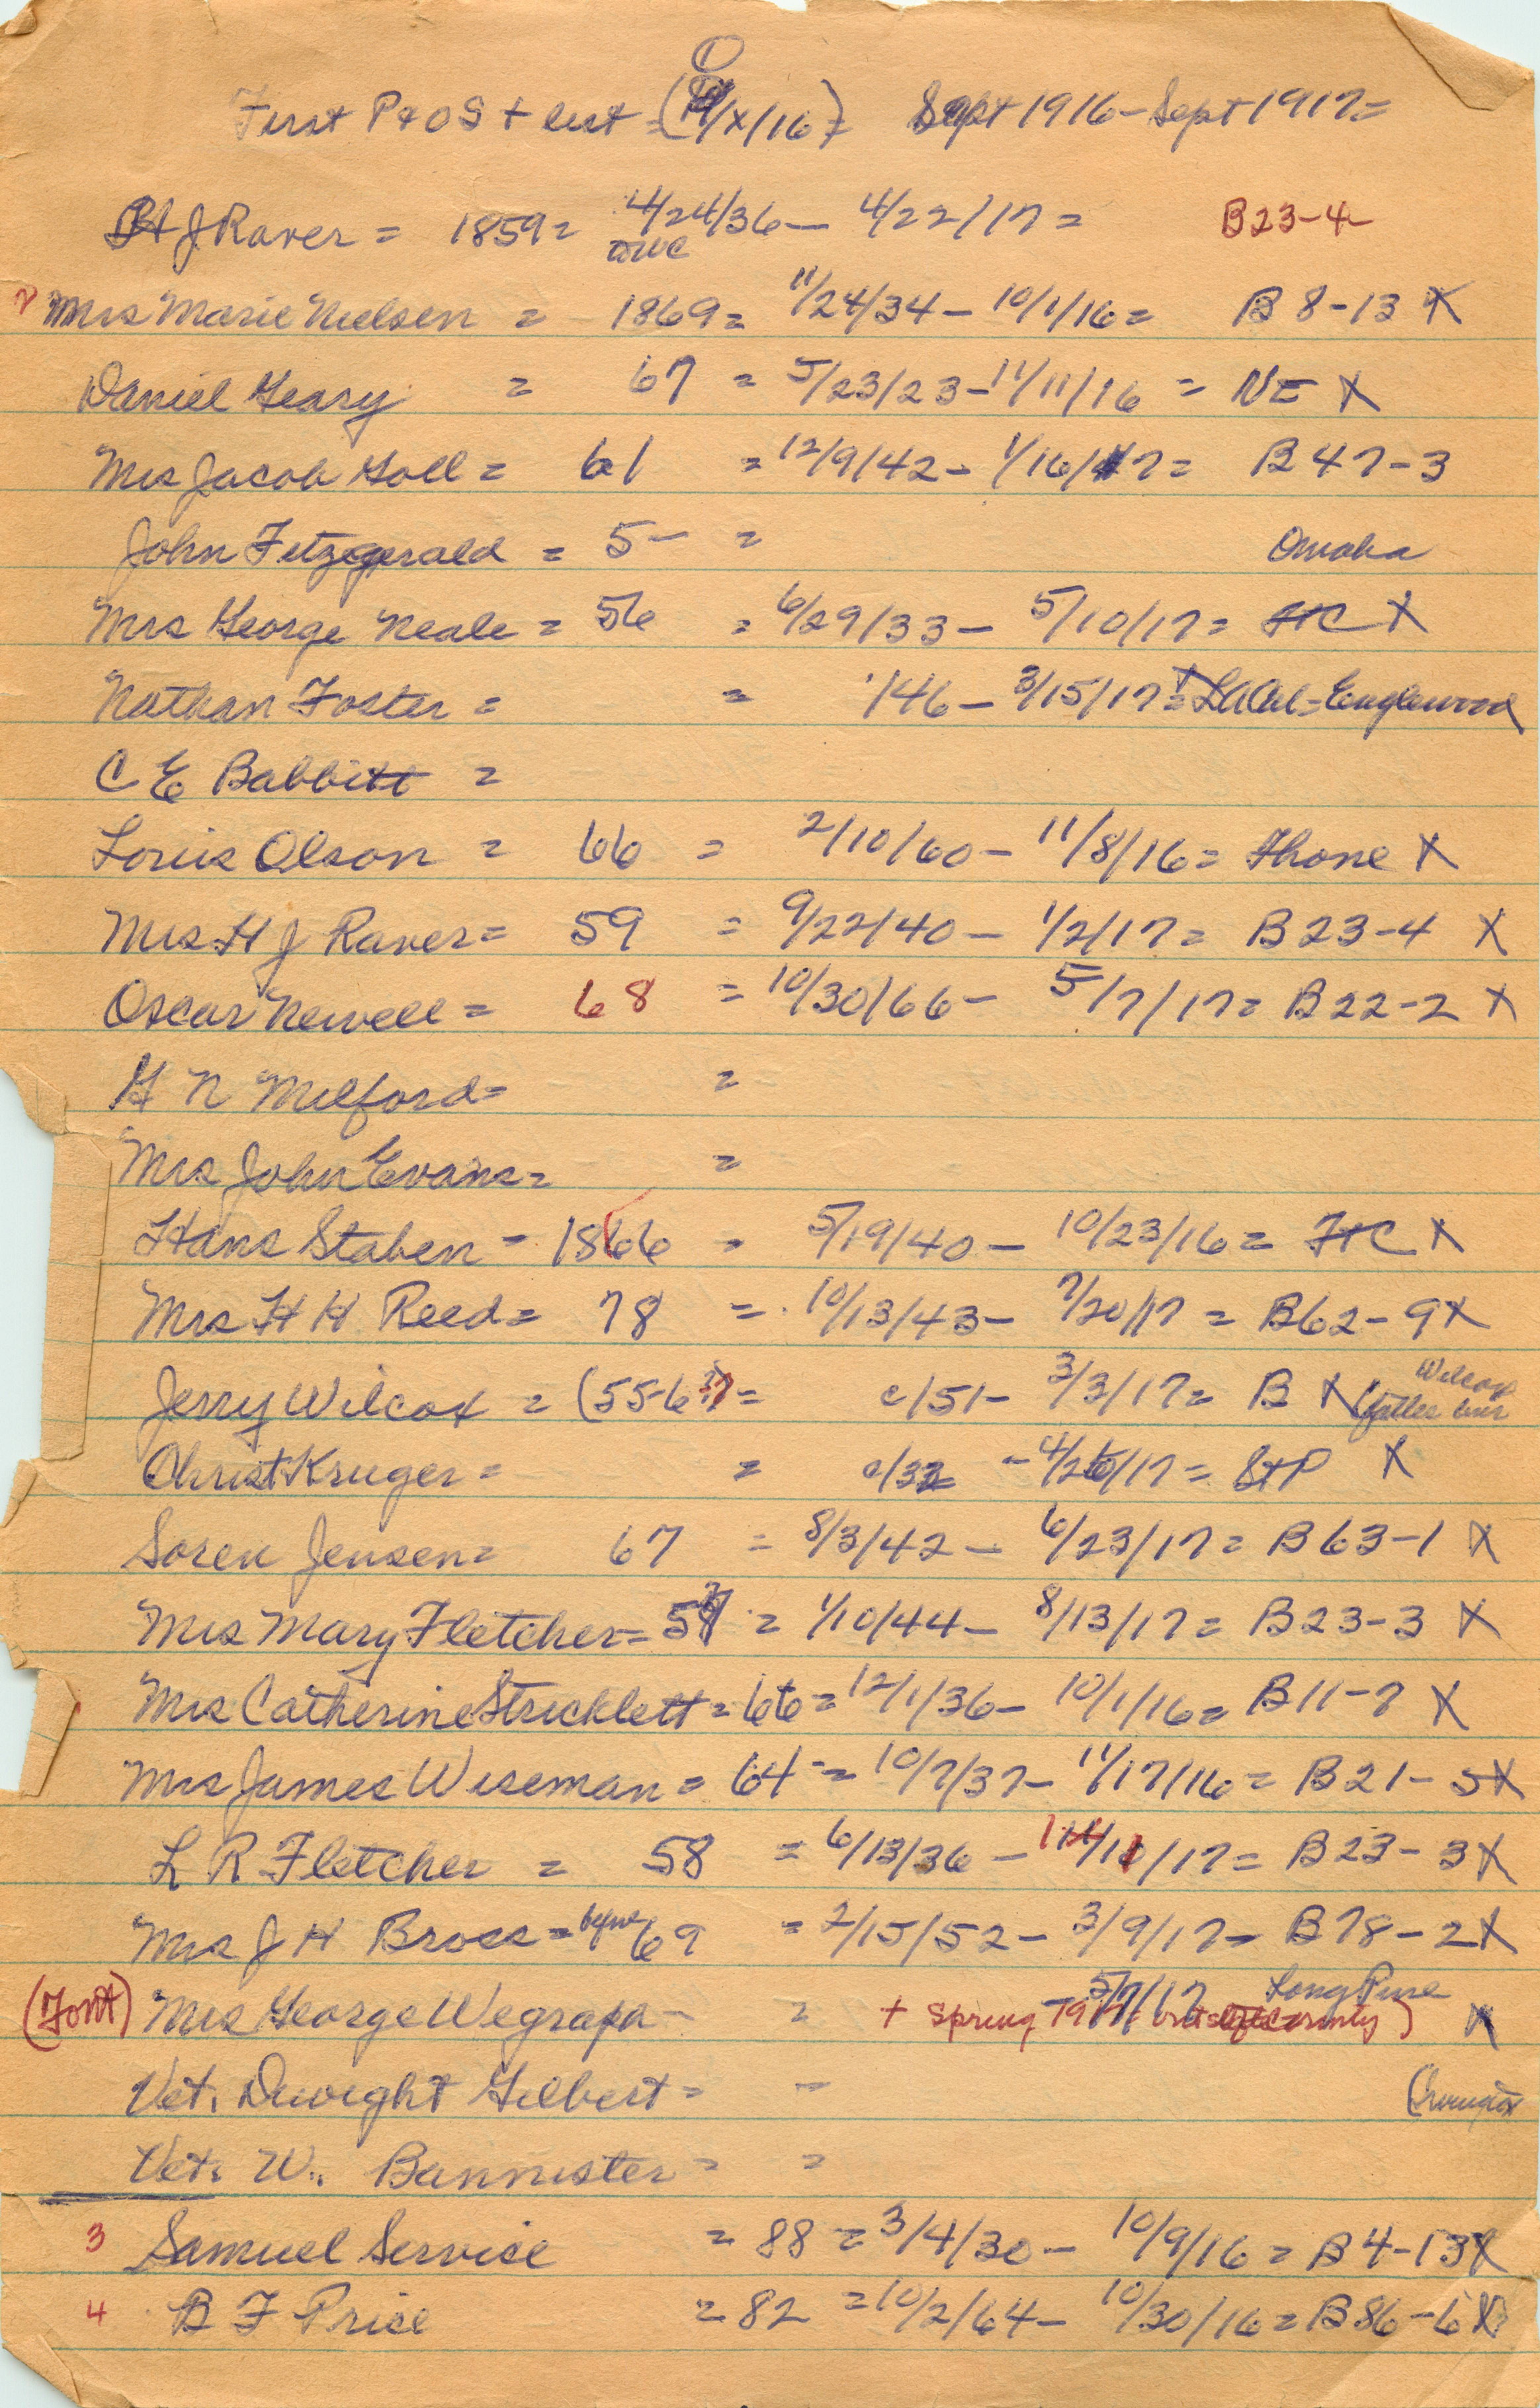 ①
First P & O S + list = (/X/16) = Sept 1916 - Sept 1917 =
H J Raver = 1859 = 4/24/36 - 4/22/17 = B23-4
Mrs Marie Nielsen = 1869 = 11/24/34 - 10/1/16 = B 8-13 X
Daniel Geary = 67 = 5/23/23 - 11/11/16 = NE X
Mrs Jacob Goll = 61 = 12/9/42 - 1/16/17 = B 47-3
John Fitzgerald = 5- = Omaha
Mrs George Neale = 56 = 6/29/33 - 5/10/17 = HC X
Nathan Foster = = /46 - 3/15/17 = X LA Cal = Englewood
C E Babbitt =
Louis Olson = 66 = 2/10/60 - 11/8/16 = Thone X
Mrs H J Raver = 59 = 9/22/40 - 1/2/17 = B 23-4 X
Oscar Newell = 68 = 10/30/66 - 5/7/17 = B 22-2 X
G N Milford = =
Mrs John Evans = =
Hans Staben - 1866 = 5/19/40 - 10/23/16 = HC X
Mrs H H Reed = 78 = 10/13/43 - 7/20/17 = B62-9 X
Jerry Wilcox = (55-6 = c/51 - 3/3/17 = B X (Wilcox
Christ Kruger = = c/32 - 4/26/17 = StP X
Soren Jensen = 67 = 8/3/42 - 6/23/17 = B 63-1 X
Mrs Mary Fletcher = 57 = 1/10/44 - 8/13/17 = B23-3 X
Mrs Catherine Stricklett = 66 = 12/1/36 - 10/1/16 = B11-7 X
Mrs James Wiseman = 64 = 10/7/37 - 11/17/16 = B21-5 X
L R Fletcher = 58 = 6/13/36 - 1/11/17 = B 23-3 X
Mrs J H Bross = before 69 = 2/15/52 - 3/9/17 = B78-2 X
(Font) Mrs George Wegrapa - = + Spring 5/7/17 Long Pine County) X
Vet. Dwight Gilbert = =
Vet. W.. Bannister = =
3 Samuel Service = 88 = 3/4/30 - 10/9/16 = B 4-13 X
4 B F Price = 82 = 10/2/64 - 10/30/16 = B 86-6 X